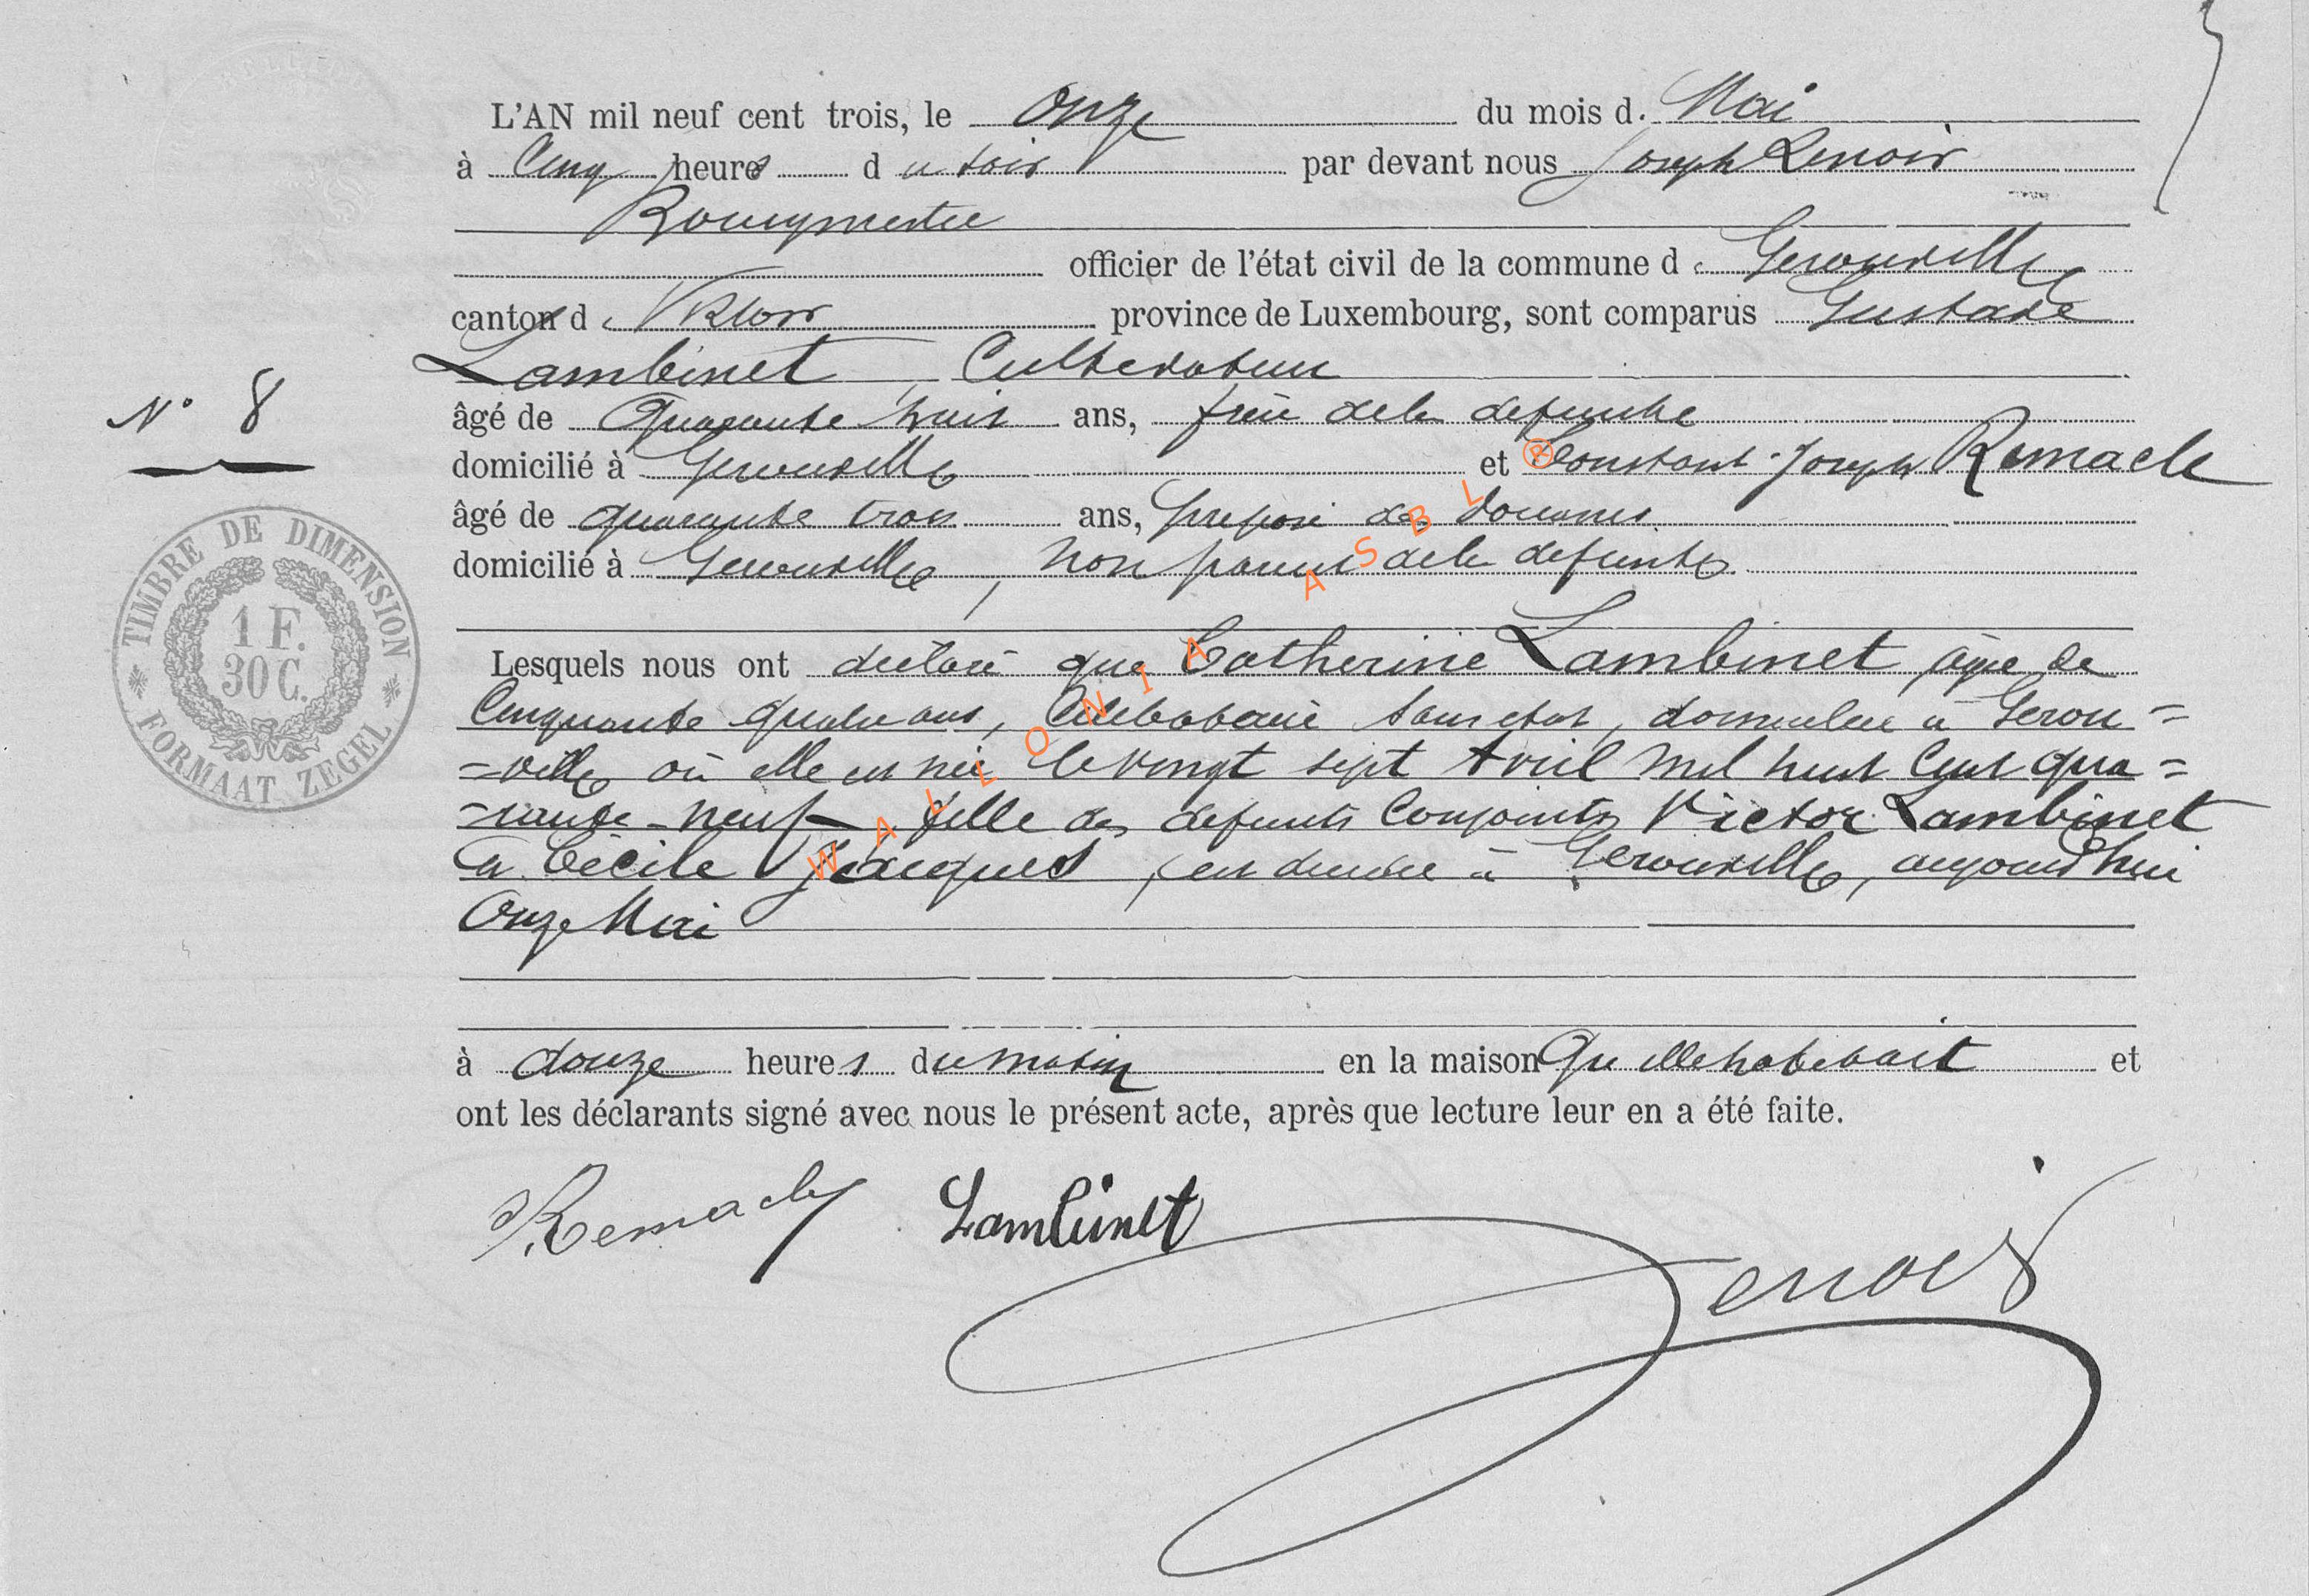 L'AN mil neuf cent trois, le onze du mois d. Mai
à Cinq heures d u soir par devant nous Joseph Lenoir
Bourgmestre
officier de l'état civil de la commune d e Gerouville
canton d e Virton province de Luxembourg, sont comparus Gustave
Lambinet, Cultivateur
N° 8
âgé de Quarante huit ans, frère de la defunte
domicilié à Gerouville et Constant-Joseph Remacle
âgé de quarante trois ans, préposé des douanes
domicilié à Gerouville, non parent de la defunte
Lesquels nous ont declaré que Catherine Lambinet, âgée de
Cinquante quatre ans, Célibataire sans etat, domiciliée à Gerou=
=ville où elle est née le vingt sept Avril mil huit Cent qua=
=rante-neuf fille des defunts Conjoints Victor Lambinet
et Cécile Jacques, est decedée à Gerouville, aujourd'hui
Onze Mai
à douze heures du matin en la maison qu'elle habitait et
ont les déclarants signé avec nous le présent acte, après que lecture leur en a été faite.
Remacle Lambinet Lenoir
TIMBRE DE DIMENSION
1 F.
30 C.
FORMAAT ZEGEL
WALLONIA ASBL ®